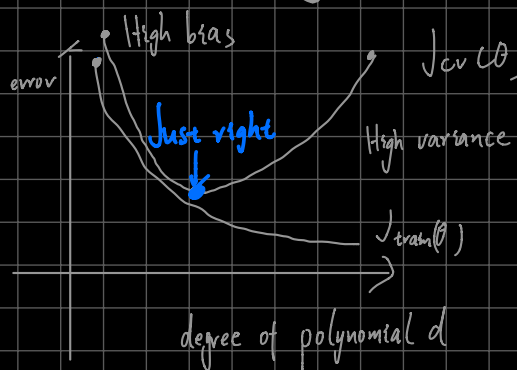 High bias
error
J cv (θ)
Just right
High variance
J train(θ)
degree of polynomial d